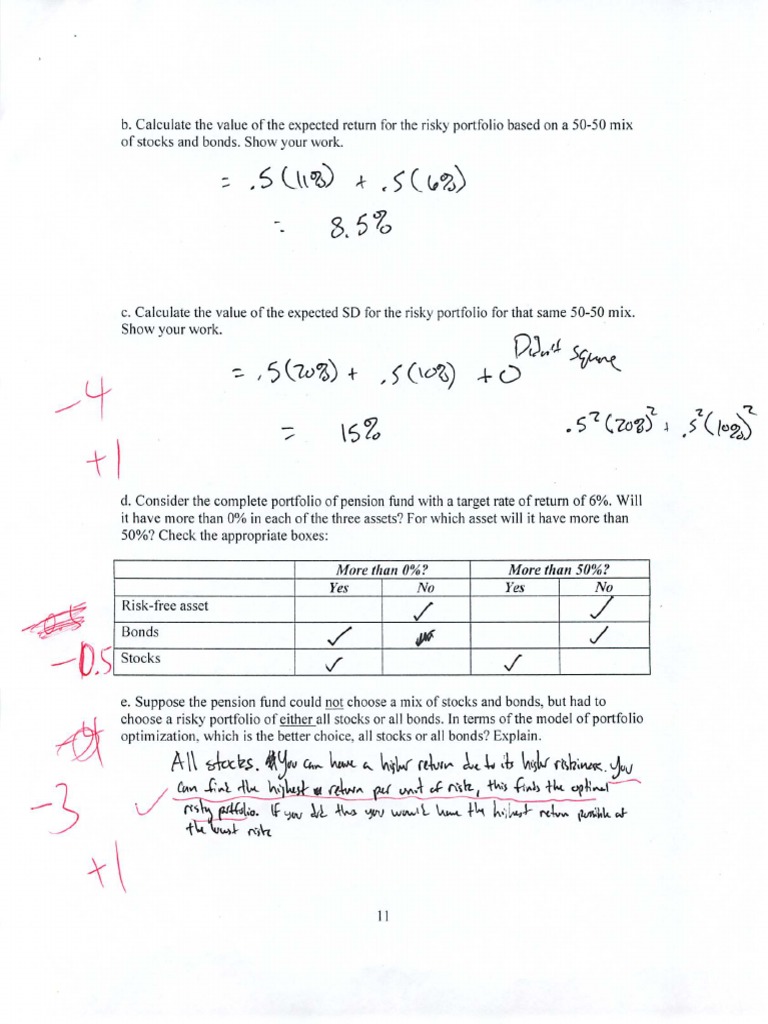 b. Calculate the value of the expected return for the risky portfolio based on a 50-50 mix
of stocks and bonds. Show your work.
= .5(11%) + .5(6%)
= 8.5%
c. Calculate the value of the expected SD for the risky portfolio for that same 50-50 mix.
Show your work.
Didn't square
= .5(20%) + .5(10%) + 0
-4
= 15%
.5²(20%)² + .5²(10%)²
+1
d. Consider the complete portfolio of pension fund with a target rate of return of 6%. Will
it have more than 0% in each of the three assets? For which asset will it have more than
50%? Check the appropriate boxes:
More than 0%? More than 50%?
Yes No Yes No
Risk-free asset ✓ ✓
Bonds ✓ ✓
-0.5
Stocks ✓ ✓
e. Suppose the pension fund could not choose a mix of stocks and bonds, but had to
choose a risky portfolio of either all stocks or all bonds. In terms of the model of portfolio
optimization, which is the better choice, all stocks or all bonds? Explain.
All stocks. You can have a higher return due to its higher riskiness. You
can find the highest return per unit of risk, this finds the optimal
-3 ✓
risky portfolio. If you did this you would have the highest return possible at
the lowest risk
+1
11